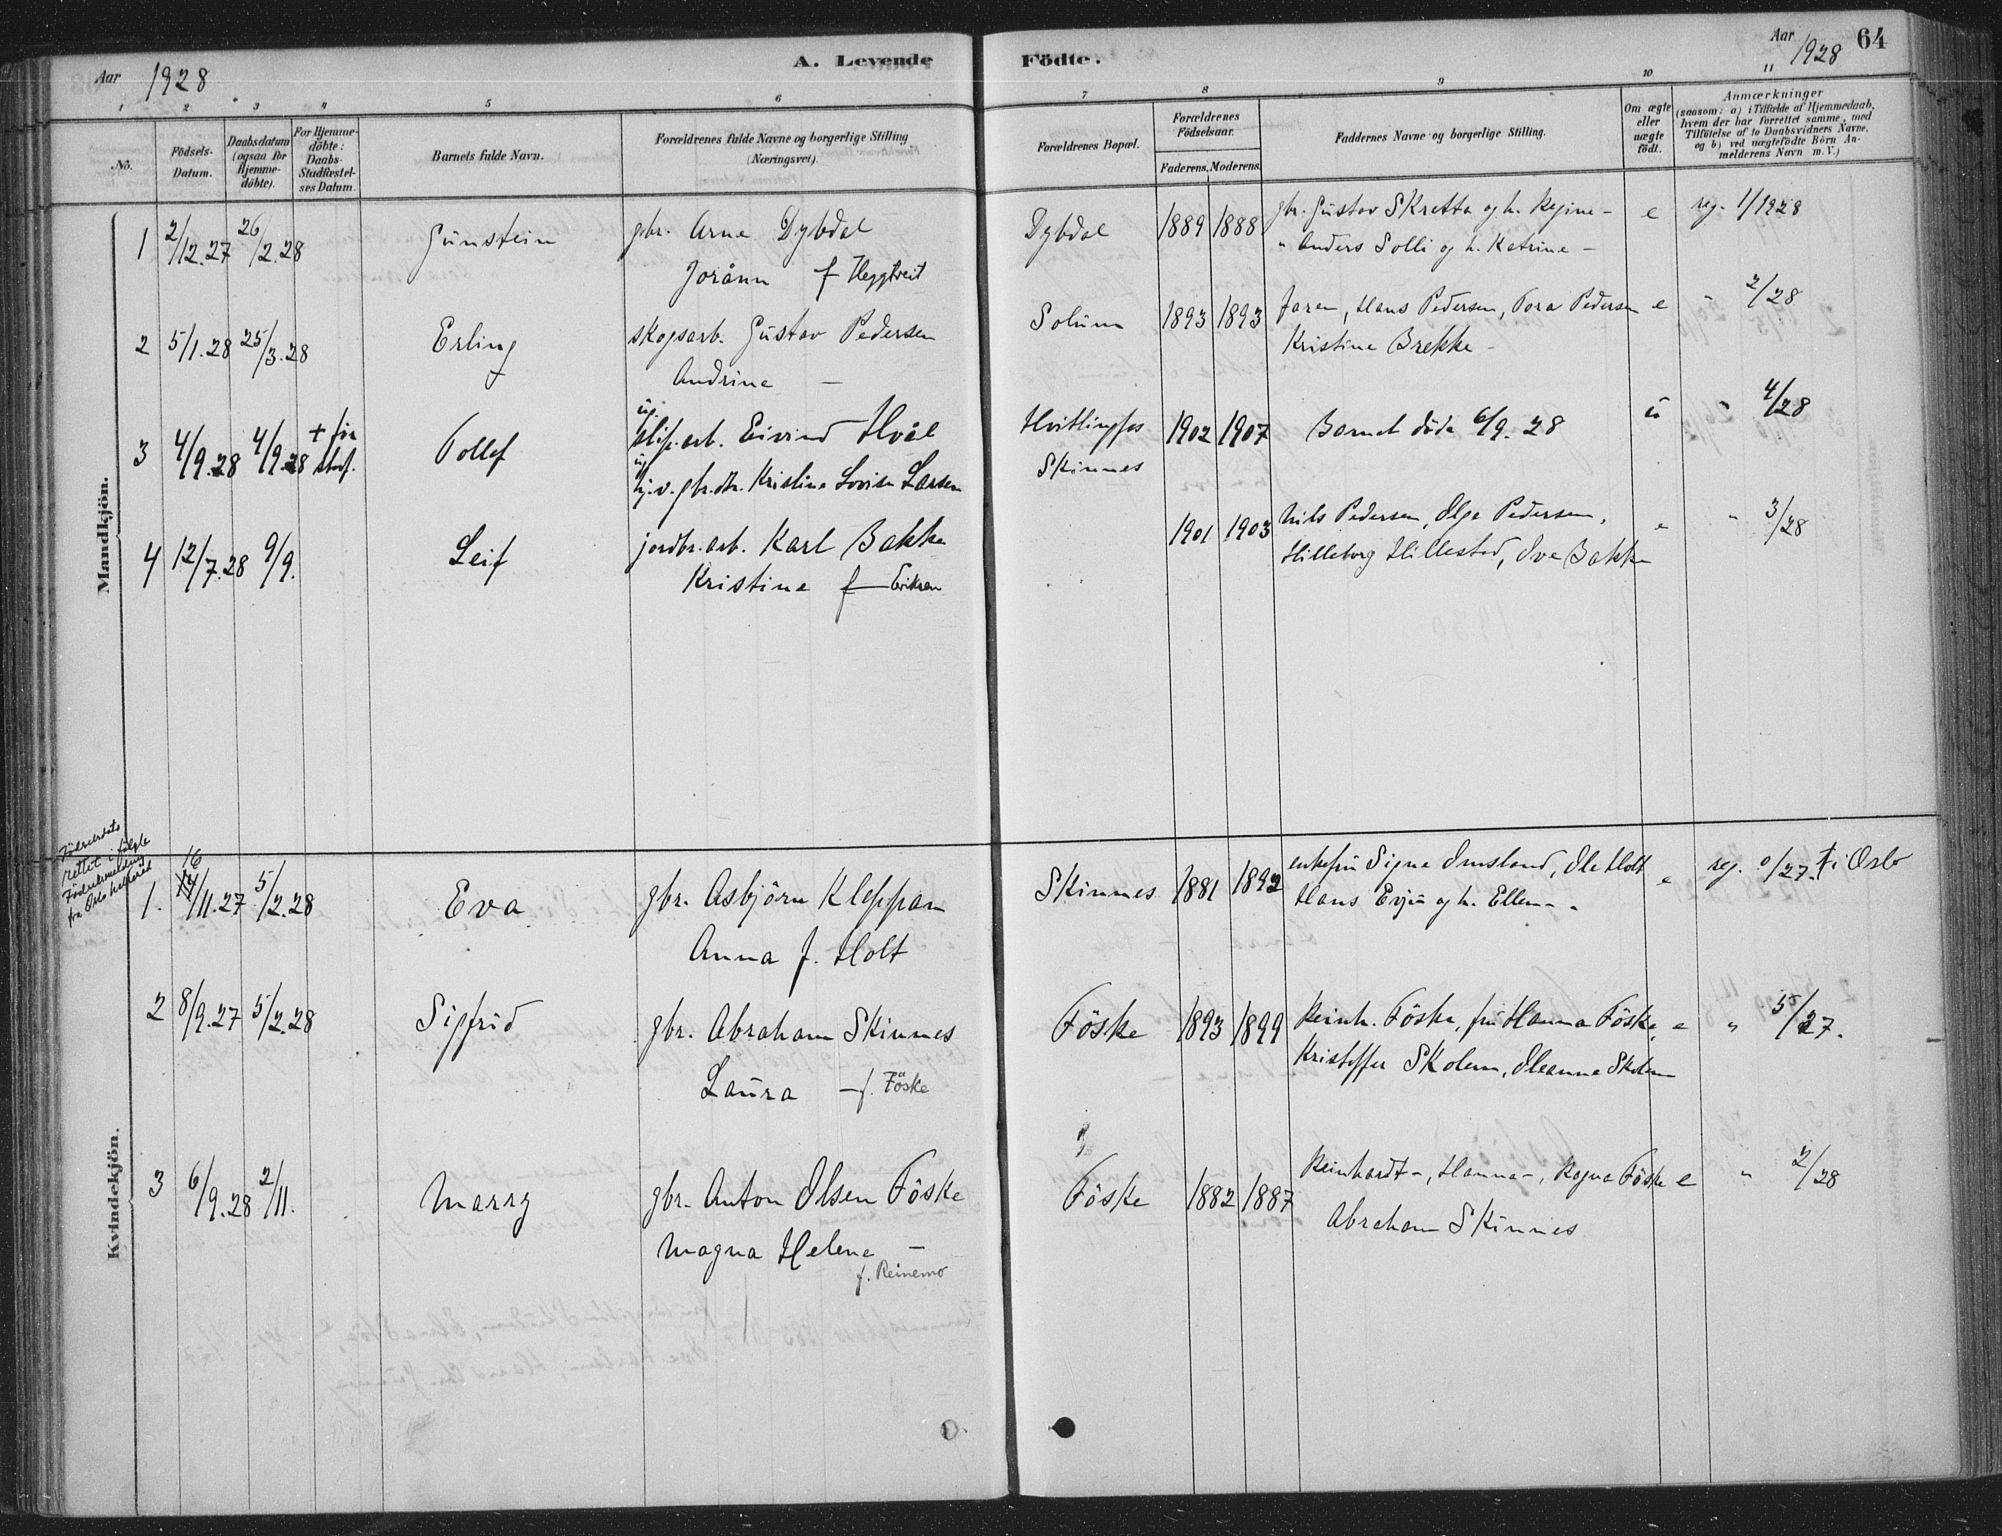 Aar 1928
A. Levende
Födte.
Aar 1928
64
1 2 3 4 5 6 7 8 9 10 11
No.
Födsels-Datum.
Daabsdatum (ogsaa for Hjemmedöbte).
For Hjemmedöbte: Daabs-Stadfæstelses Datum.
Barnets fulde Navn.
Forældrenes fulde Navne og borgerlige Stilling (Næringsvei).
Forældrenes Bopæl.
Forældrenes Födselsaar.
Faderens. Moderens.
Faddernes Navne og borgerlige Stilling.
Om ægte eller uægte födt.
Anmærkninger (saasom: a) i Tilfælde af Hjemmedaab, hvem der har forrettet samme, med Tilföielse af to Daabsvidners Navne, og b) ved uægtefödte Börn Anmelderens Navn m. V.)
Mandkjön.
1 2/12.27 26/2.28 Gunstein gbr. Arne Dybdal Dybdal 1889 1888 gbr. Gustav Skretta og h. Regine – e reg. 1/1928
Jorånn f Heggtveit " Anders Solli og h. Katrine –
2 5/1.28 25/3.28 Erling skogsarb. Gustav Pedersen Solum 1893 1893 faren, Hans Pedersen, Tora Pedersen e " 2/28
Andrine – Kristine Brekke –
3 4/9.28 4/9.28 + för stadf. Tollef ug. slip.arb. Eivind Hvål Hvittingfos 1902 1907 Barnet döde 6/9.28 u " 4/28
ug. hj.v. gbr.dtr. Kristine Lovise Larsen Skinnes
4 12/7.28 9/9. Leif jordbr.arb. Karl Bakke 1901 1903 Nils Pedersen, Olga Pedersen, e " 3/28
Kristine f Eriksen Hilleborg Hillestad, Ove Bakke
Födselsdato
rettet i følge
Födselsmelding
fra Oslo helseråd
Kvindekjön.
1. 16/11.27 5/2.28 Eva gbr. Asbjörn Kleppan Skinnes 1881 1892 enkefru Signe Omsland, Ole Holt e reg. 0/27. f i Oslo
Anna f. Holt Hans Evju og h. Ellen – .
2 8/9.27 5/2.28 Sigfrid gbr. Abraham Skinnes Föske 1893 1899 Reinh. Föske, fru Hanna Föske, e " 5/27.
Laura – f. Föske Kristoffer Skolem, Oleanne Skolem
3 6/9.28 2/11. Marry gbr. Anton Olsen Föske Föske 1882 1887 Reinhardt –, Hanna –, Ragna Föske e " 2/28
Magna Helene – Abraham Skinnes
f. Reinemo